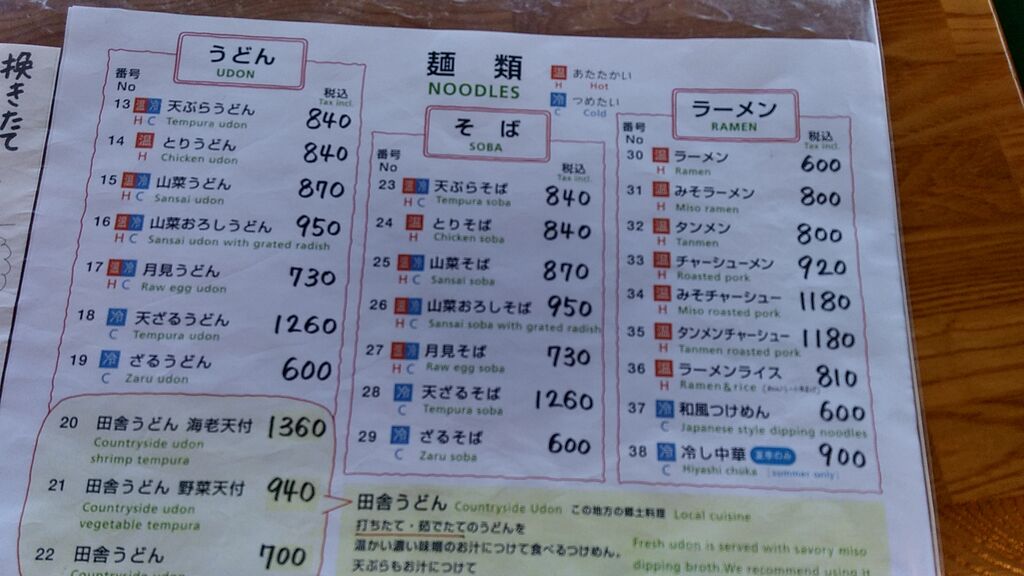 挽きたて
麺 類
NOODLES
温 あたたかい
H Hot
冷 つめたい
C Cold
うどん
UDON
番号
No
税込
Tax incl.
13 温 冷 天ぷらうどん 840
H C Tempura udon
14 温 とりうどん 840
H Chicken udon
15 温 冷 山菜うどん 870
H C Sansai udon
16 温 冷 山菜おろしうどん 950
H C Sansai udon with grated radish
17 温 冷 月見うどん 730
H C Raw egg udon
18 冷 天ざるうどん 1260
C Tempura udon
19 冷 ざるうどん 600
C Zaru udon
20 田舎うどん 海老天付 1360
Countryside udon
shrimp tempura
21 田舎うどん 野菜天付 940
Countryside udon
vegetable tempura
22 田舎うどん 700
Countryside udon
そ ば
SOBA
番号
No
税込
Tax incl.
23 温 冷 天ぷらそば 840
H C Tempura soba
24 温 とりそば 840
H Chicken soba
25 温 冷 山菜そば 870
H C Sansai soba
26 温 冷 山菜おろしそば 950
H C Sansai soba with grated radish
27 温 冷 月見そば 730
H C Raw egg soba
28 冷 天ざるそば 1260
C Tempura soba
29 冷 ざるそば 600
C Zaru soba
ラーメン
RAMEN
番号
No
税込
Tax incl.
30 温 ラーメン 600
H Ramen
31 温 みそラーメン 800
H Miso ramen
32 温 タンメン 800
H Tanmen
33 温 チャーシューメン 920
H Roasted pork
34 温 みそチャーシュー 1180
H Miso roasted pork
35 温 タンメンチャーシュー 1180
H Tanmen roasted pork
36 温 ラーメンライス 810
H Ramen&rice
37 冷 和風つけめん 600
C Japanese style dipping noodles
38 冷 冷し中華 夏季のみ 900
C Hiyashi chuka (summer only)
田舎うどん Countryside Udon この地方の郷土料理 Local cuisine
打ちたて・茹でたてのうどんを
温かい濃い味噌のお汁につけて食べるつけめん。
天ぷらもお汁につけて
Fresh udon is served with savory miso
dipping broth.We recommend using it